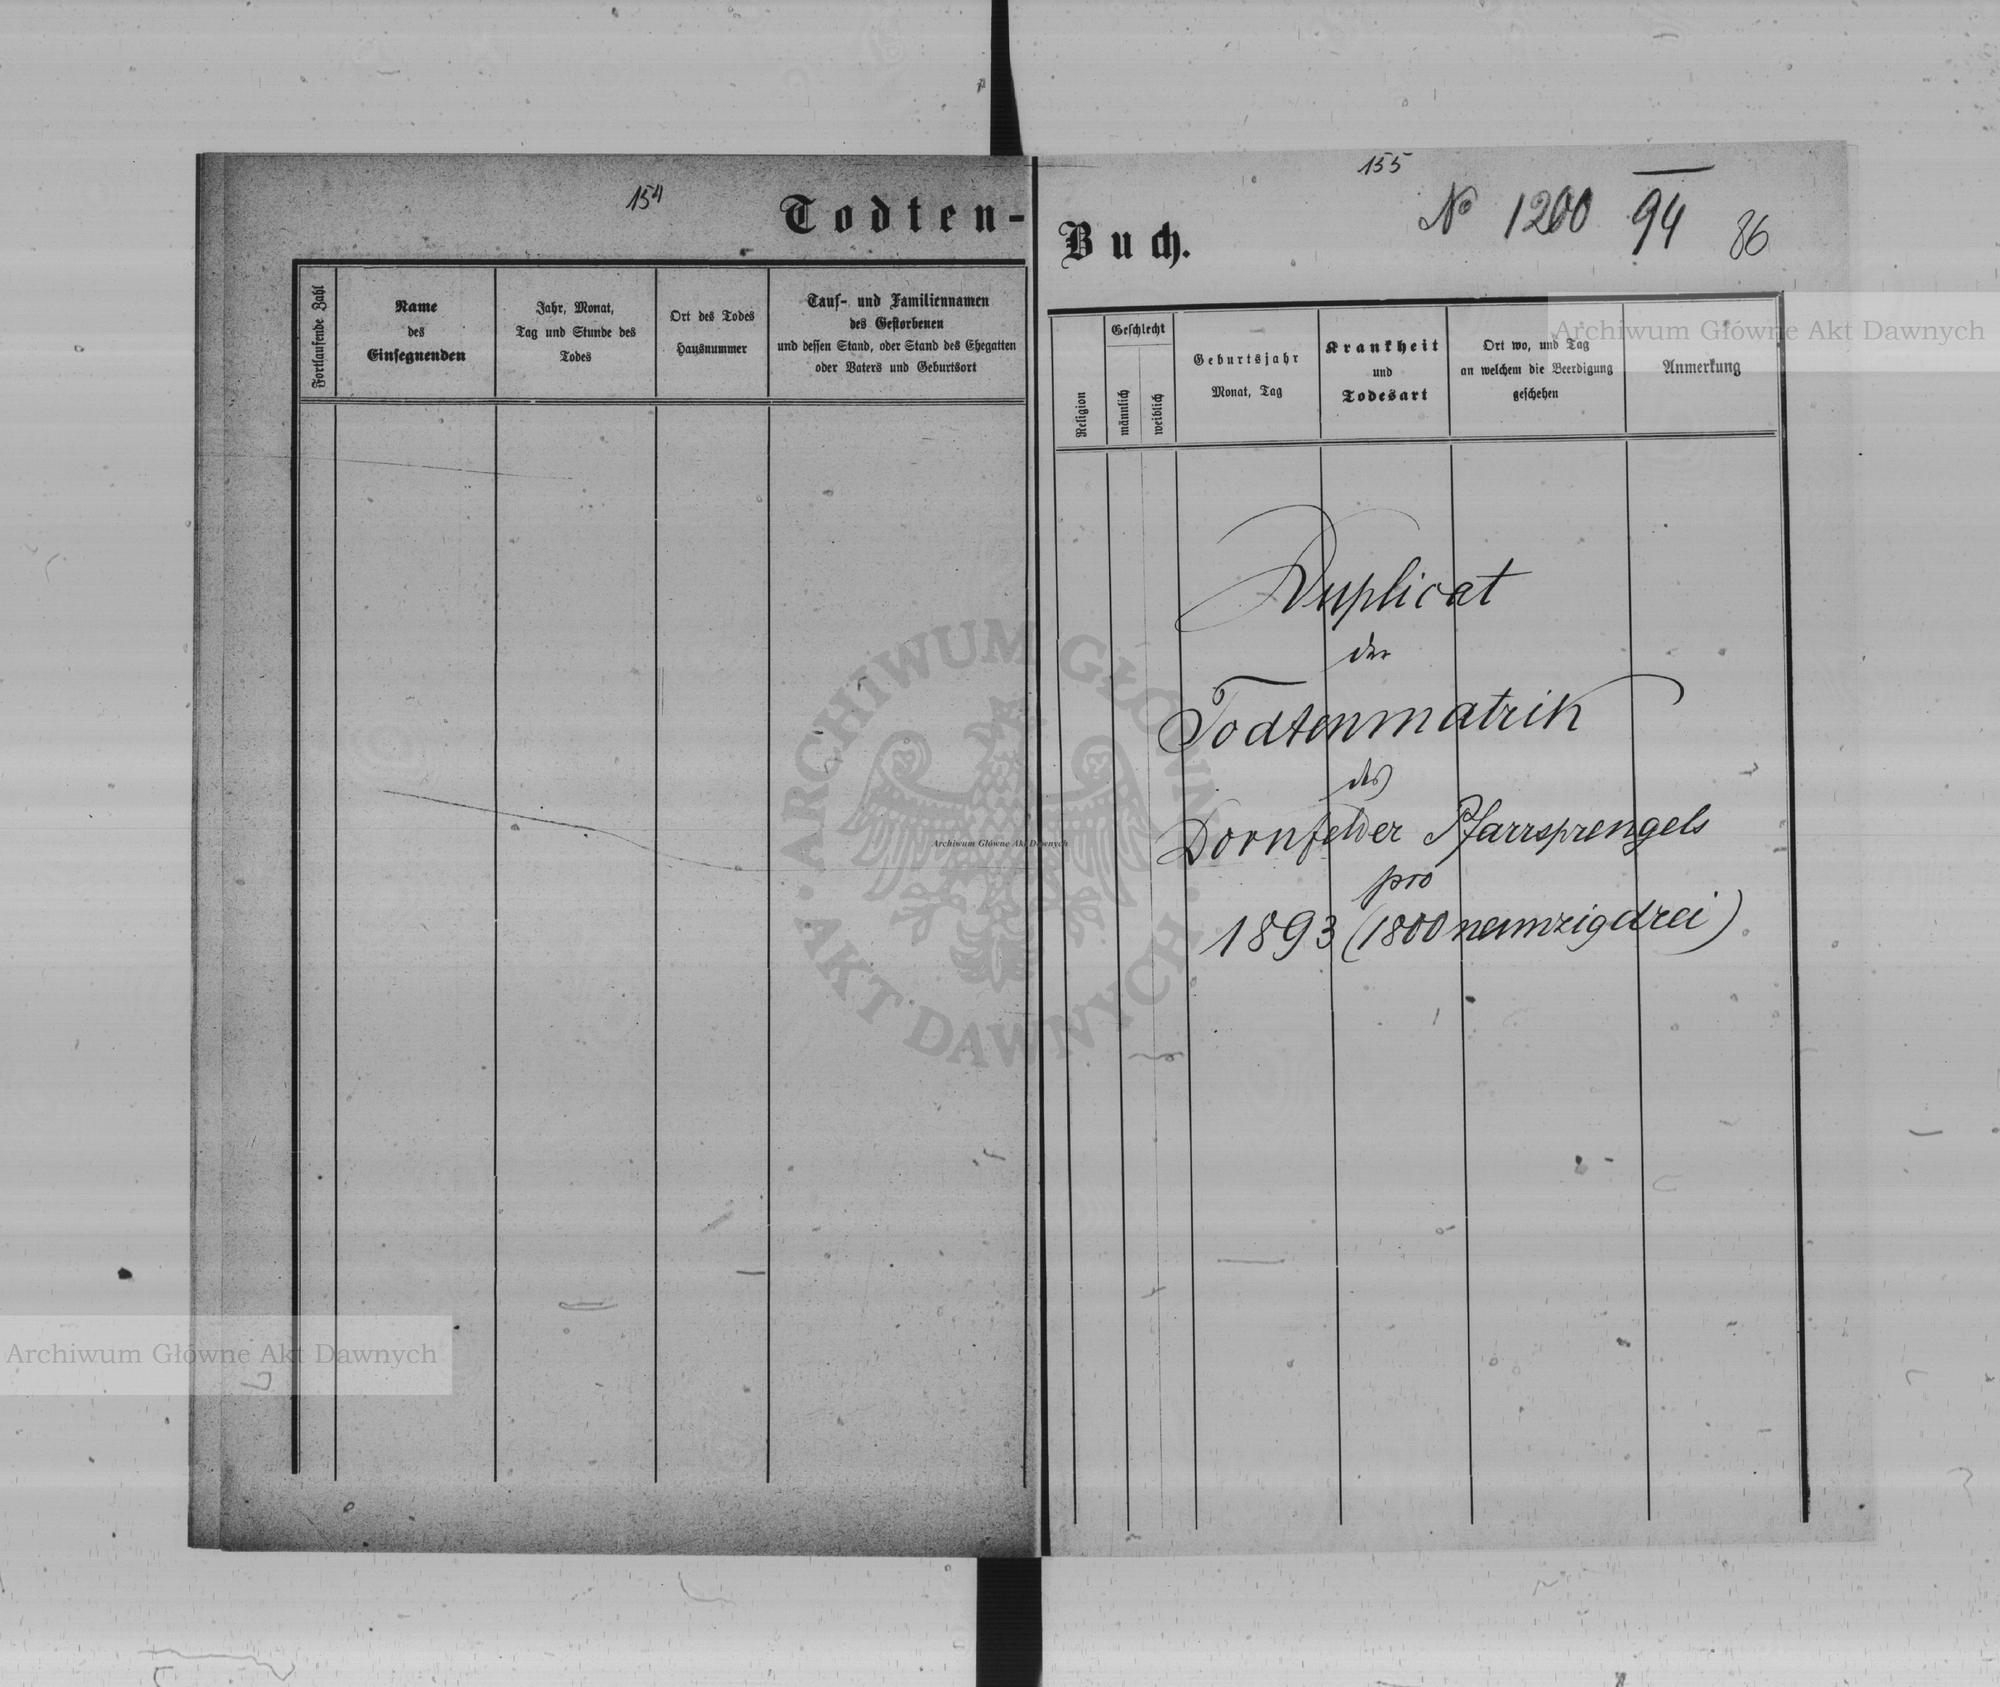 154
Todten-
Fortlaufende Zahl
Name
des
Einsegnenden
Jahr, Monat,
Tag und Stunde des
Todes
Ort des Todes
Hausnummer
Tauf- und Familiennamen
des Gestorbenen
und dessen Stand, oder Stand des Ehegatten
oder Vaters und Geburtsort
155
No 1200 94 86
Buch.
Religion
Geschlecht
männlich
weiblich
Geburtsjahr
Monat, Tag
Krankheit
und
Todesart
Ort wo, und Tag
an welchem die Beerdigung
geschehen
Anmerkung
Duplicat
der
Todtenmatrik
des
Dornfelder Pfarrsprengels
pro
1893 (1800 neunzigdrei)
Archiwum Główne Akt Dawnych
ARCHIWUM GŁÓWNE · AKT DAWNYCH ·
Archiwum Główne Akt Dawnych
Archiwum Główne Akt Dawnych